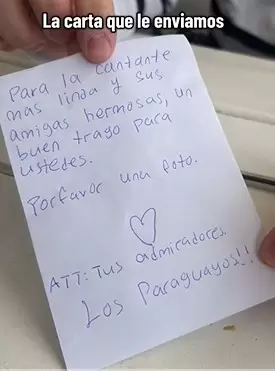 La carta que le enviamos
Para la cantante
mas linda y sus
amigas hermosas, un
buen trago para
ustedes.
Porfavor una foto.
ATT: Tus admiradores.
Los Paraguayos!!